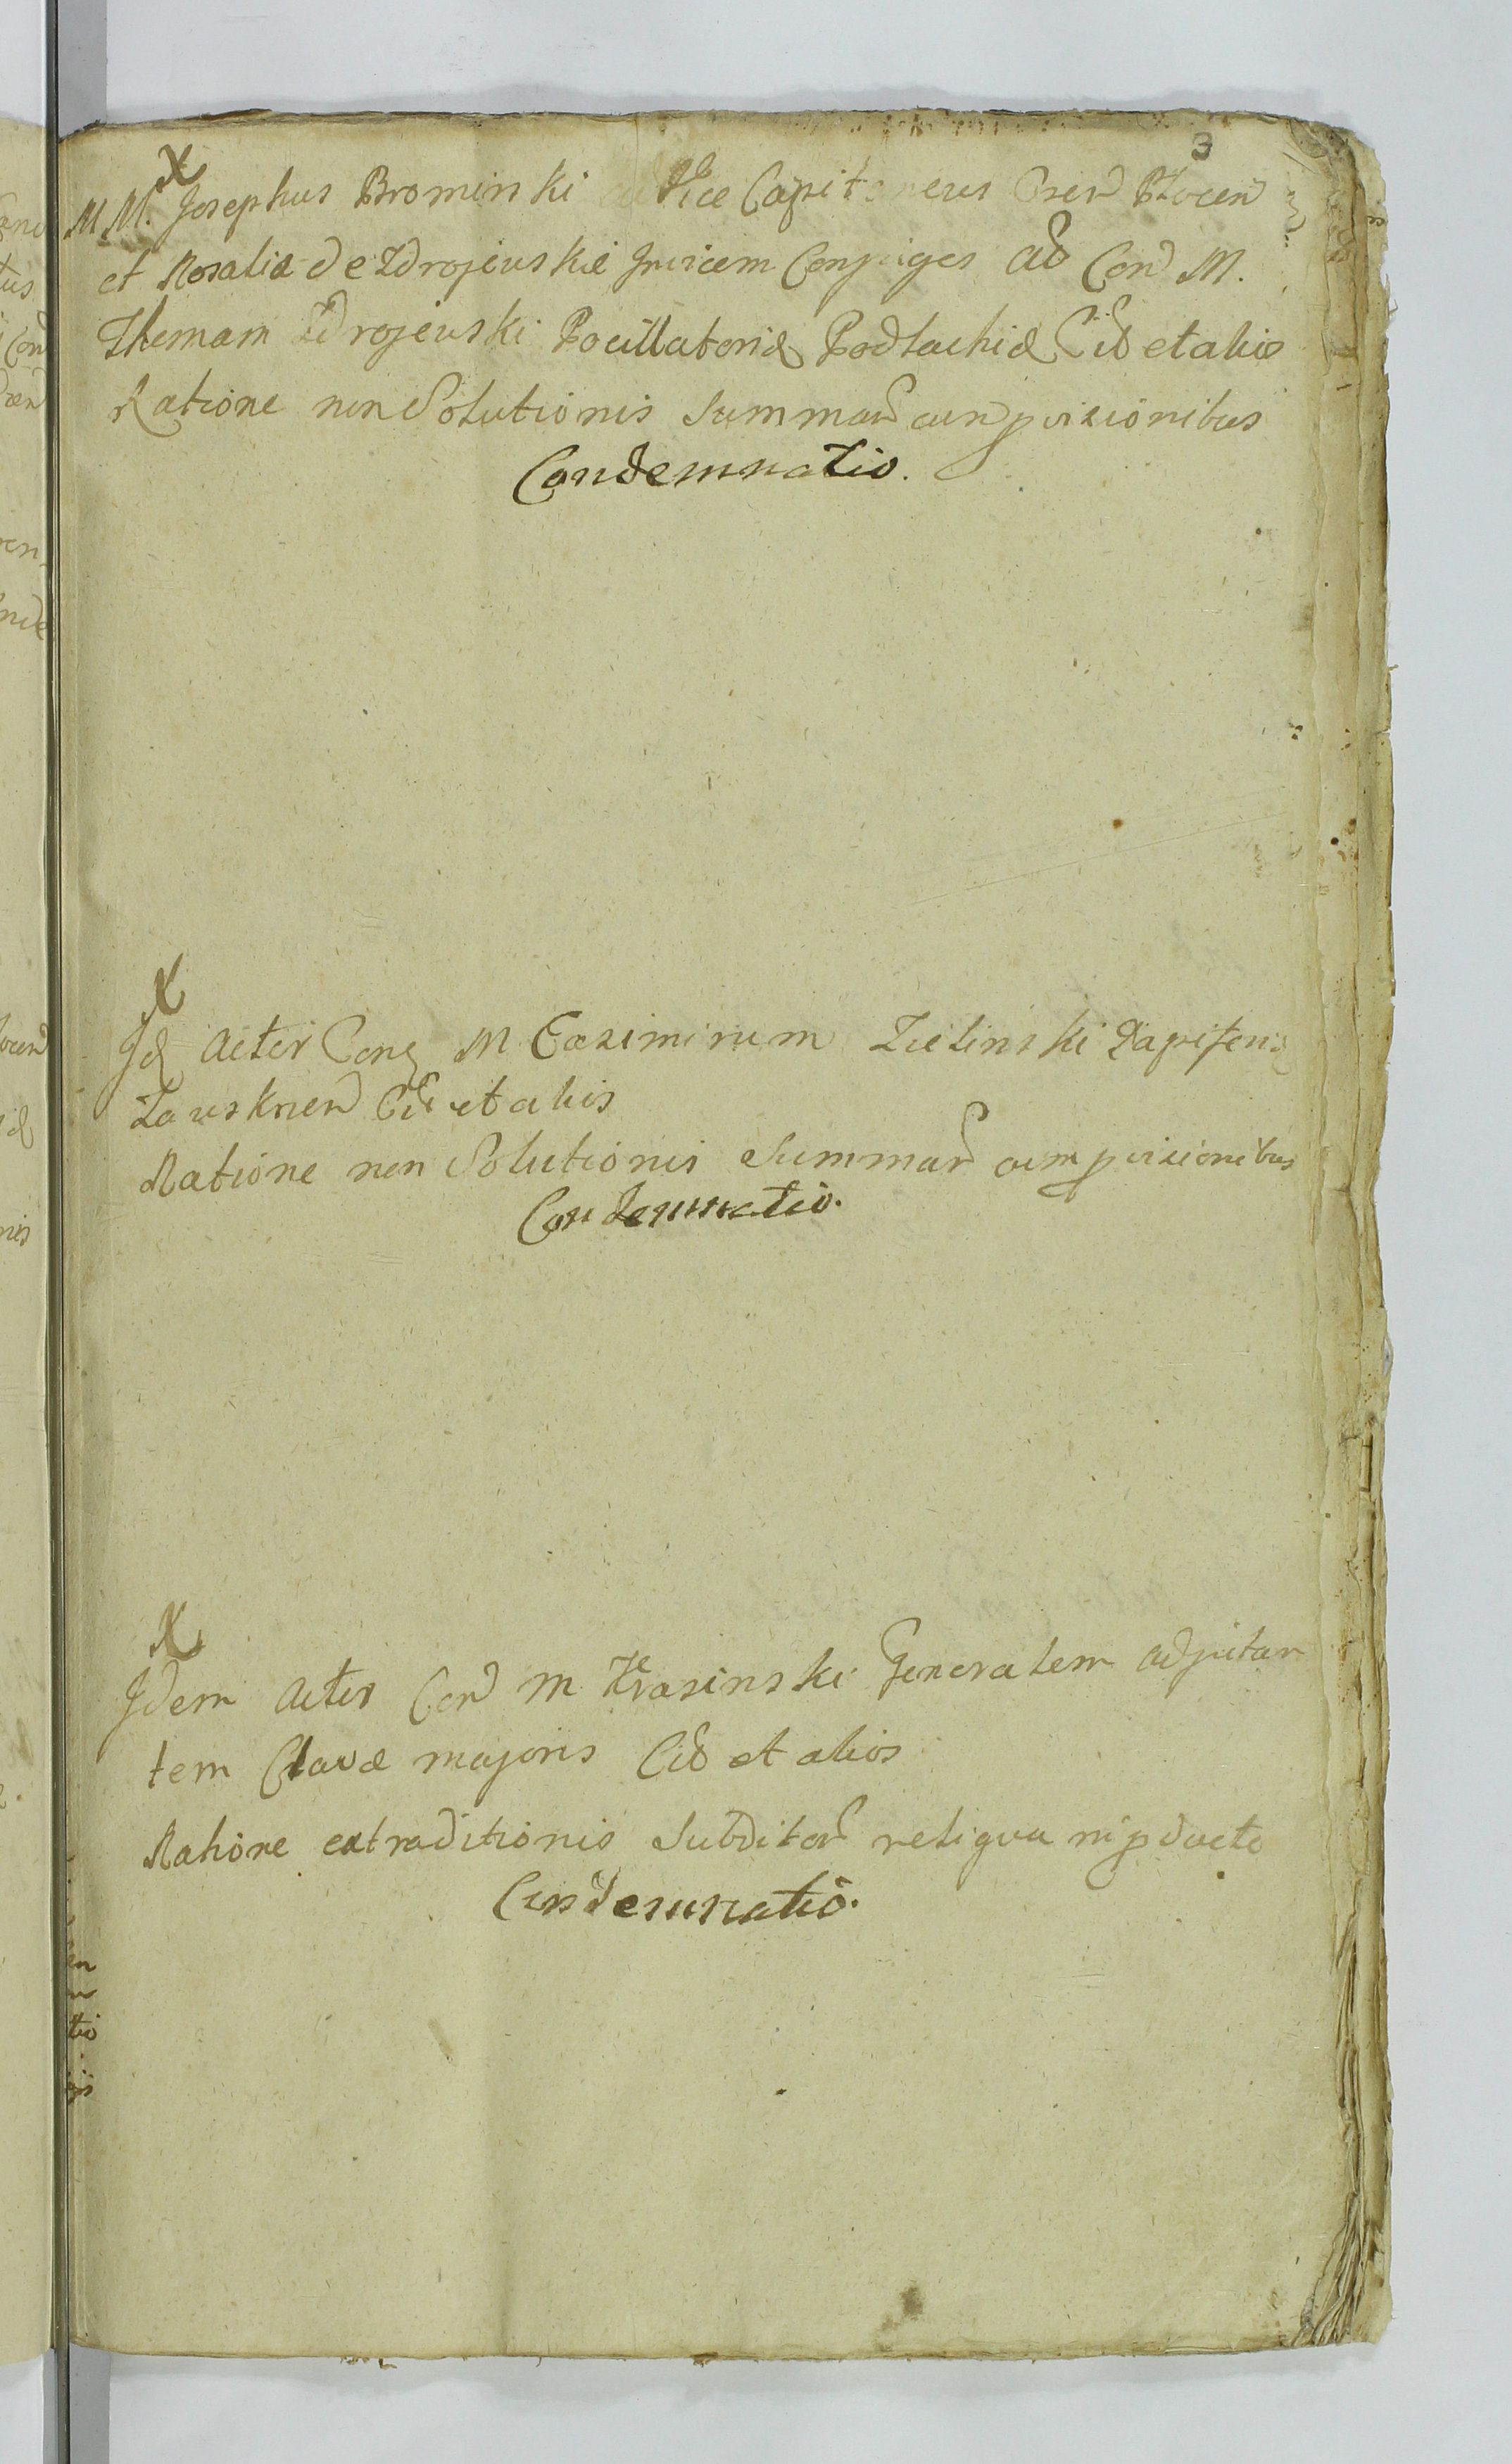 3
X
M M. Josephus Brominski Vice Capitaneus Plocen
et Rosalia de Zdrojewskie Invicem Conjuges Con M.
Thomam Zdrojewski Pocillatorid Podlachid Cid et alios
Ratione non Solutionis Summar cum pvisionibus
Condemnatio.
X
Id Actor Con M Casimirum Zielinski Dapiferu
Zawskrien Cid et alios
Ratione non Solutionis Summar cum pvisionibus
Condemnatio.
X
Idem Actor Con M Krasinski Generalem adjutan
tem Clavæ majoris Cid et alios
Ratione extraditionis Subditor reliqua
Condemnatio.